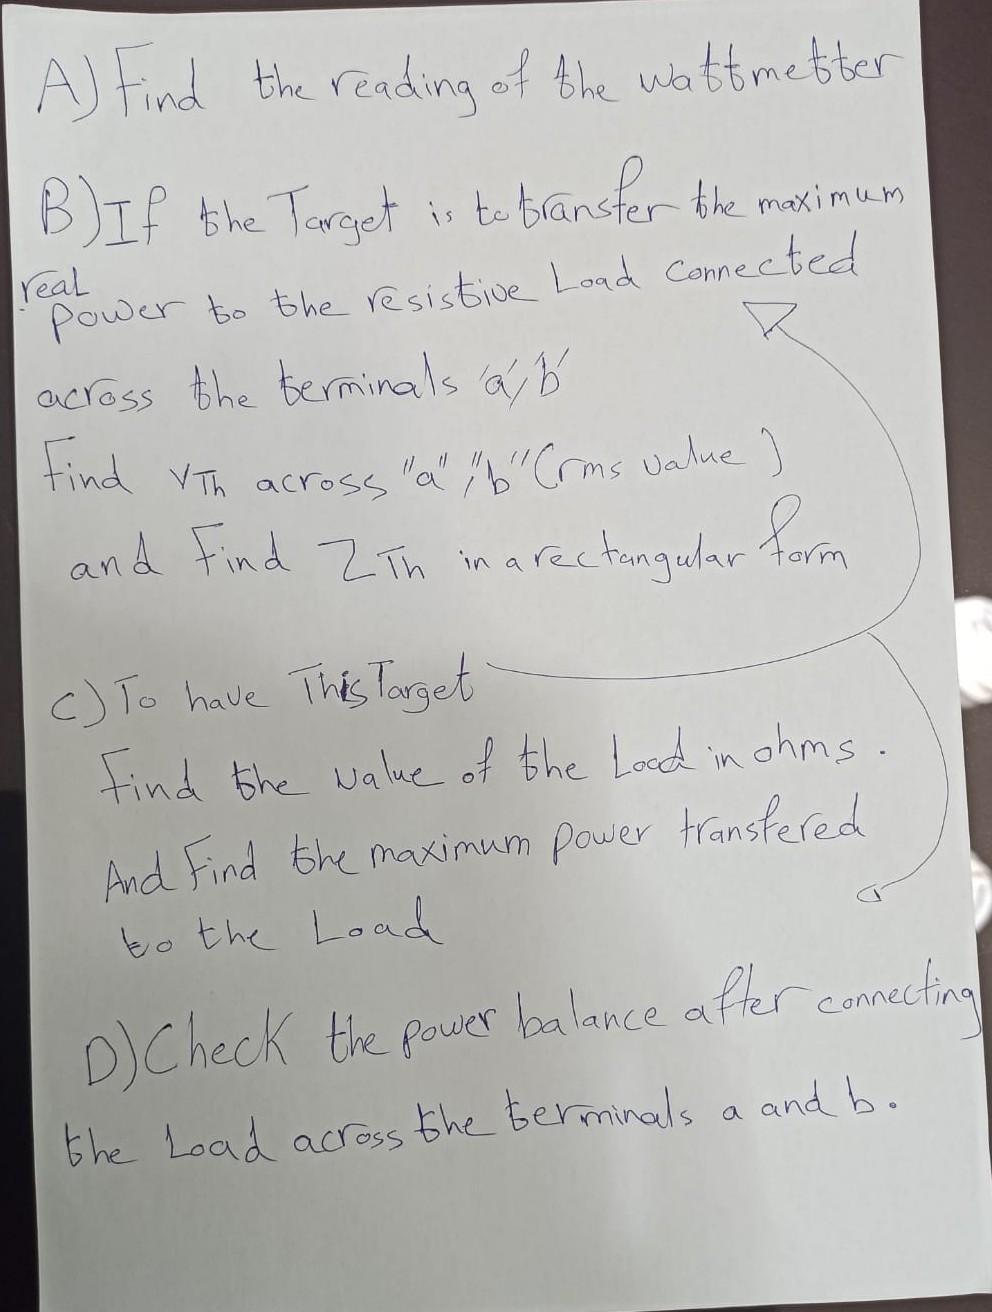 A) Find the reading of the wattmetter
B) If the Target is to transfer the maximum
real
power to the resistive Load connected
across the terminals 'a', 'b'
Find VTh across "a", "b" (rms value)
and Find ZTh in a rectangular form
C) To have This Target
Find the value of the Load in ohms.
And Find the maximum power transfered
to the Load
D) Check the power balance after connecting
the Load across the terminals a and b.